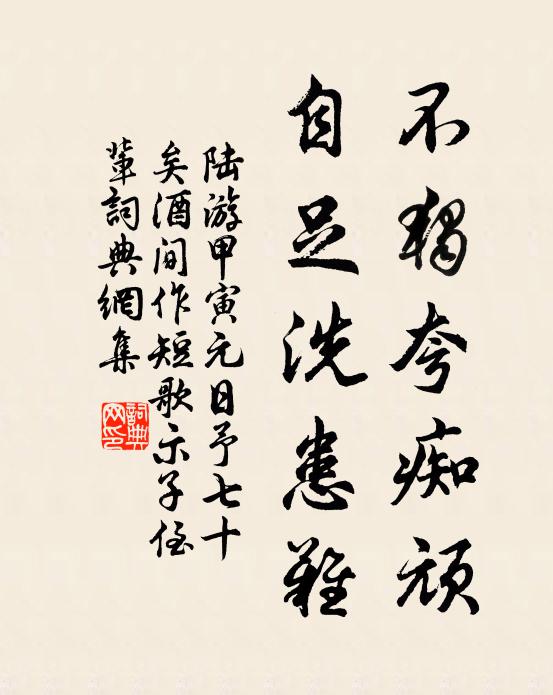 不独夸痴顽
自足洗患難
陆游甲寅元日予七十
矣酒间作短歌示子侄
輩詞典網集
詞典
网印